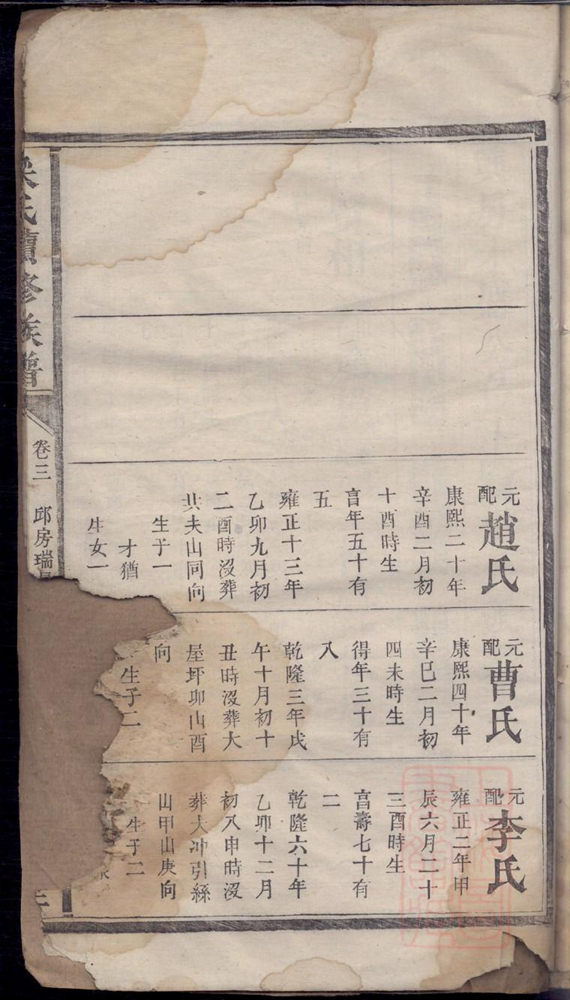 元配趙氏
康熙二十年
辛酉二月初
十酉時生
言年五十有
五
雍正十三年
乙卯九月初
二酉時沒葬
共夫山同向
生子一
才猶
生女一
元配曹氏
康熙四十年
辛巳二月初
四未時生
得年三十有
八
乾隆三年戊
午十月初十
丑時沒葬大
屋坪卯山酉
向
生子二
元配李氏
雍正二年甲
辰六月二十
三酉時生
言壽七十有
二
乾隆六十年
乙卯十二月
初八申時沒
葬大冲引絲
山甲山庚向
生子二
梁氏續修族譜
卷三
邱房瑞